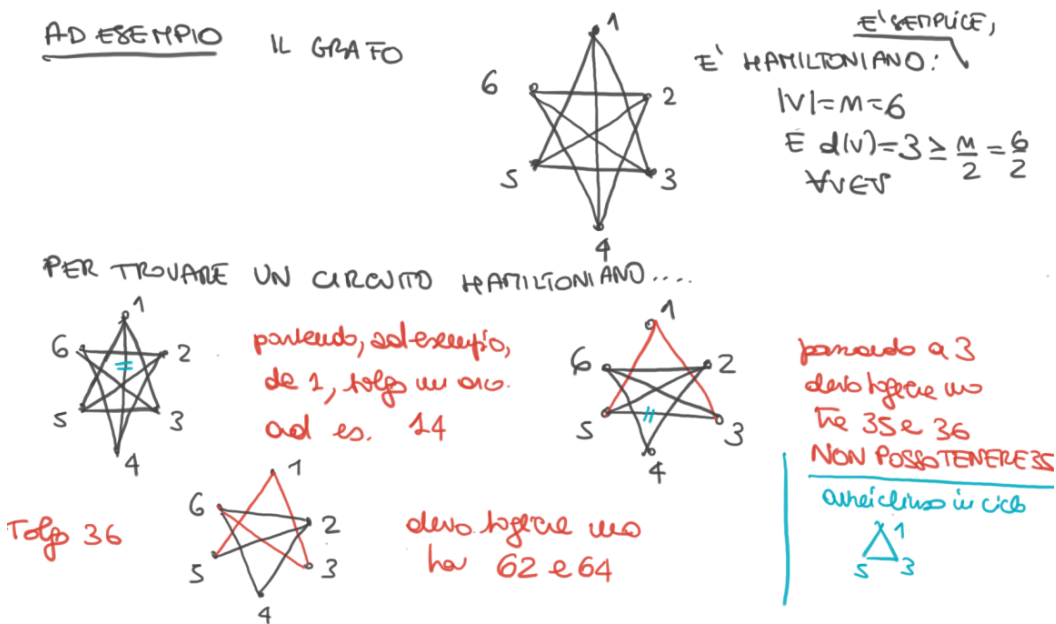 AD ESEMPIO IL GRAFO
1
6
2
5
3
4
E' SEMPLICE,
E' HAMILTONIANO:
|V|=m=6
E d(v)=3≥m/2=6/2
∀v∈V
PER TROVARE UN CIRCUITO HAMILTONIANO....
1
6
2
5
3
4
partendo, ad esempio,
da 1, tolgo un arco.
ad es. 14
1
6
2
5
3
4
passando a 3
devo togliere uno
tra 35 e 36
NON POSSO TENERE 35
avrei chiuso in ciclo
1
5 3
Tolgo 36
1
6
2
5
3
4
devo togliere uno
tra 62 e 64